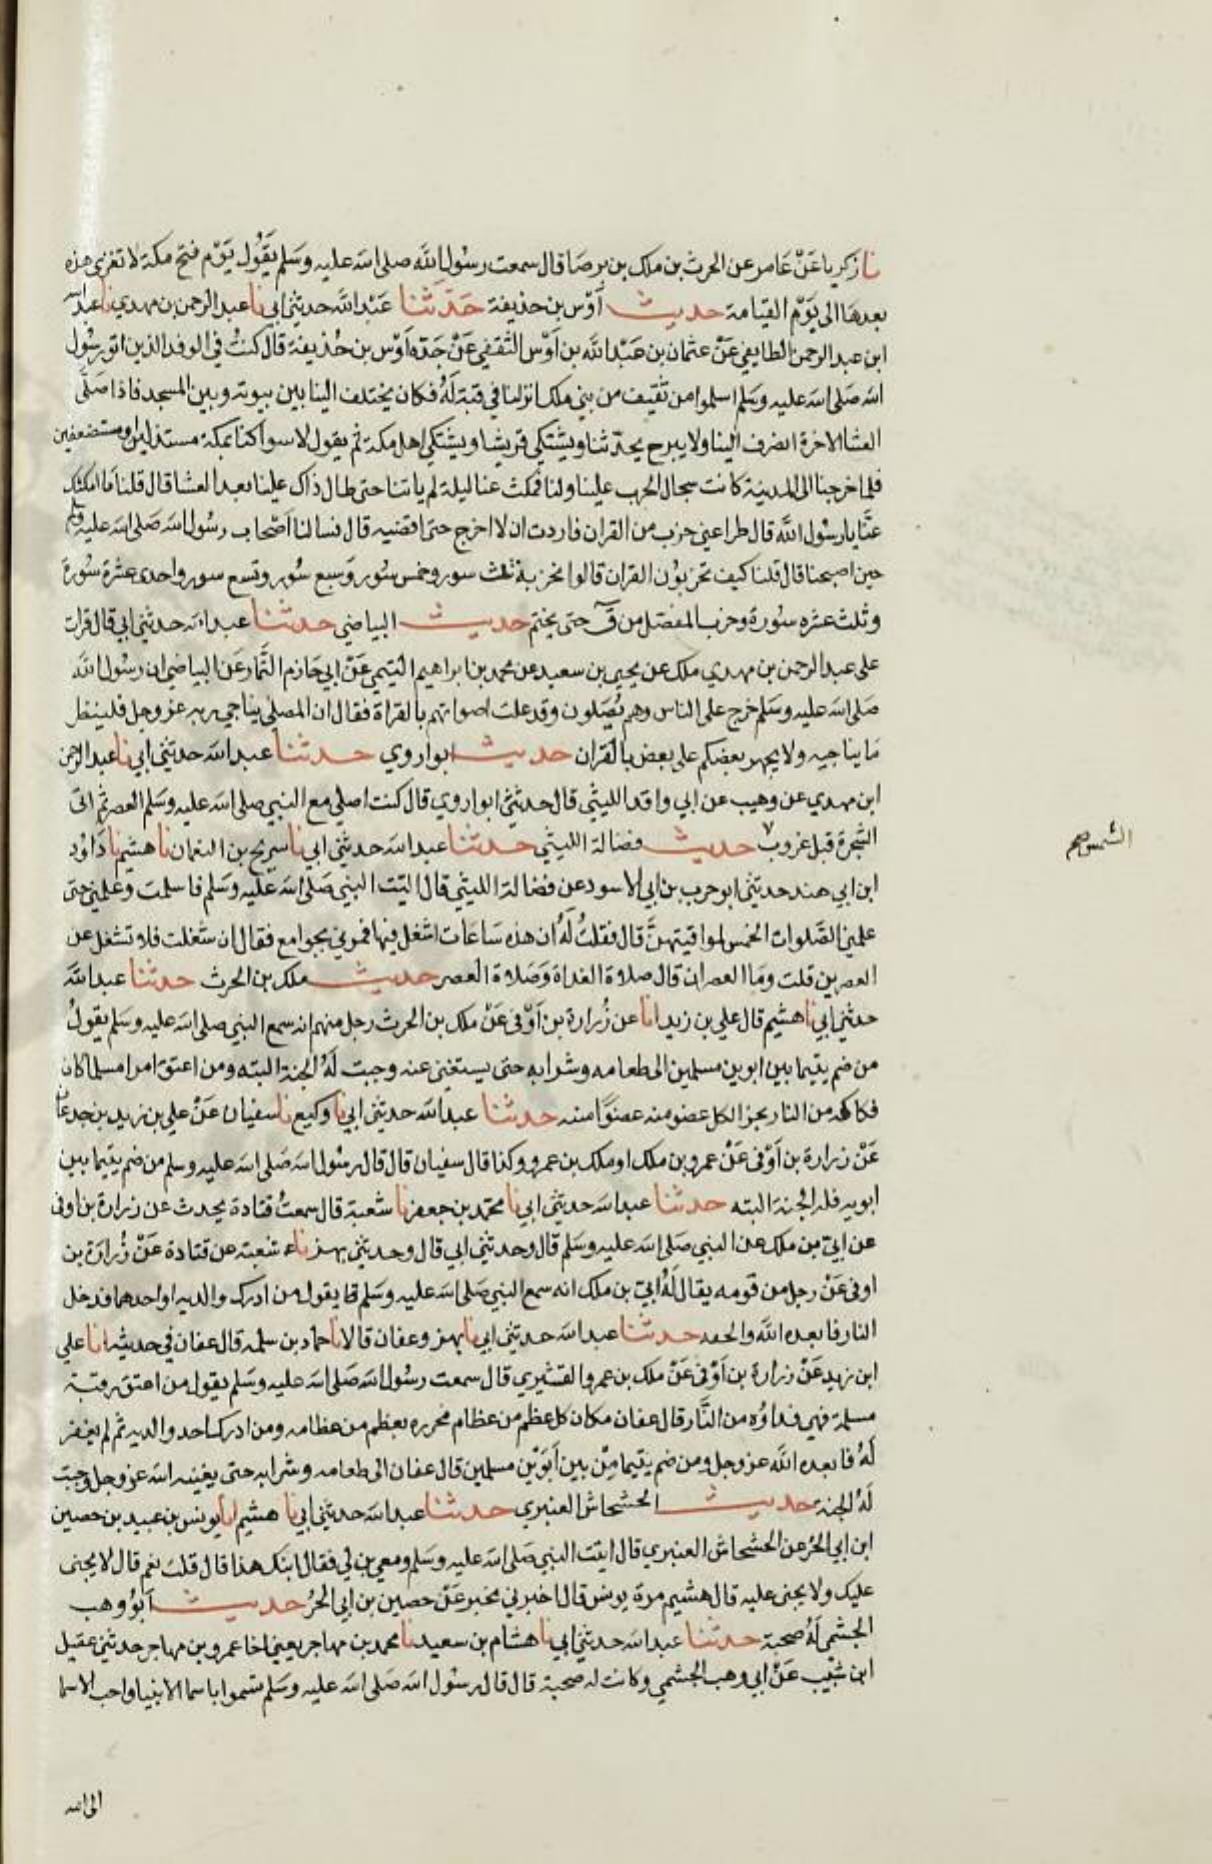 نا زكريا عَنْ عَامر عن الحرث بن ملك بن برصَا قال سمعت رسُول الله صلى الله عليه وسَلم يقُول يَوْم فتح مكة لا تغزى هذه
بعدهَا الى يَوْم القيامة حديث أَوْس بن حذيفة حَدّثنا عَبْد الله حدثني ابي نا عبد الرحمن بن مهدي نا عبد الله
ابن عبد الرحمن الطايفي عَنْ عثمان بن عَبْد الله بن اَوْس الثقفي عَنْ جَدّه اَوْس بن حُذيفة قال كنتُ في الوفد الذين اتو رسُول
الله صَلى الله عليه وسَلم اسلموا من ثقيف من بني ملك انزلنا في قبة لَهُ فكان يختلف الينا بين بيوته وبين المسجد فاذا صَلّى
العشا الاخرة انصرف الينا ولا يبرح يحدّثنا ويشتكي قريشا ويشتكي اهل مكة ثم يقول لا سوا كنا بمكة مستذلين او مستضعفين
فلما خرجنا الى المدينة كانت سجال الحرب علينا ولنا فمكث عنا ليلة لم ياتنا حتى طال ذاك علينا بعد العشا قال قلنا مَا امكثك
عنّا يا رسُول الله قال طرا عني حزب من القران فاردت ان لا اخرج حتى اقضيه قال فسالنا اَصْحاب رسُول الله صَلى الله عليه وسلم
حين اصبحنا قال قلنا كيف تحزبوُن القران قالوا نحزبه ثلث سور وخمس سُور وسبع سُور وتسع سور واحدى عشرة سُورة
وثلث عشره سُورة وحزب المفصّل من قٓ حتى يختم حديث البياضي حدثنا عبد الله حدثني ابي قال قرات
على عبد الرحمن بن مهدي ملك عن يحيى بن سعيد عن محمد بن ابراهيم التيمي عَنْ ابي حَازم التّمار عَن البياضي ان رسُول الله
صَلى الله عليه وسَلم خرج على الناس وهم يُصَلون وقد علت اصواتهم بالقراة فقال ان المصلي يناجي ربه عز وجل فلينظر
مَا يناجيه ولا يجهر بعضكم على بعض بالقران حديث ابو اروي حدثنا عبد الله حدثني ابي نا عبد الرحمن
ابن مهدي عن وهيب عن ابي واقد الليثي قال حدثني ابو اروي قال كنت اصلي مع النبي صلى الله عليه وسَلم العصر ثم اتى
الشجرة قبل غروب حديث فضالة الليثي حدثنا عبد الله حدثني ابي نا سريج بن النعمان نا هشيم نا دَاوُد
الشمس صح
ابن ابي هند حدثني ابو حرب بن ابي الاسود عن فضالة الليثي قال اتيت النبي صَلى الله عليه وسَلم فاسلمت وعلمني حتى
علمني الصَّلوات الخمس لمواقيتهنّ قال فقلتُ لَهُ ان هذه سَاعَات اشغل فيها فمرني بجوامع فقال ان شغلت فلا تشغل عن
العصرين قلت ومَا العصران قال صلاة الغداة وَصَلاة العصر حديث ملك بن الحرث حدثنا عبد الله
حدثني ابي نا هشيم قال علي بن زيد انا عن زُرارة بن اَوْفى عَنْ ملك بن الحرث رجل منهم انه سمع النبي صلى الله عليه وسَلم يقولُ
من ضم يتيما بين ابوين مسلمين الى طعامه وشرابه حتى يستغني عنه وجبت لَهُ الجنة البته ومن اعتق امرا مسلما كان
فكاكه من النار يجز الكل عضو منه عضوًا منه حدثنا عبد الله حدثني ابي نا وكيع نا سفيان عَنْ علي بن زيد بن جدعان
عَنْ زرارة بن اَوْفى عَنْ عمرو بن ملك او ملك بن عمرو وكذا قال سفيان قال قال رسُول الله صَلى الله عليه وسلم من ضم يتيما بين
ابويه فله الجنة البته حدثنا عبد الله حدثني ابي نا محمّد بن جعفر نا شعبة قال سمعتُ قتادة يحدث عن زرارة بن اوفى
عن ابيّ بن ملك عن النبي صَلى الله عليه وسَلم قال وحدثني ابي قال وحدثني بهز نا شعبة عن قتادة عَنْ زُرارَة بن
اوفى عَنْ رجل من قومه يقال لَهُ ابيّ بن ملك انه سمع النبي صَلى الله عليه وسَلم يقول من ادرك والديه او احدهما فدخل
النار فابعده الله والحقه حدثنا عبد الله حدثني ابي نا بهز وعفان قالا نا حماد بن سلمه قال عفان في حديثه انا علي
ابن زيد عَنْ زرارة بن اَوْفى عَنْ ملك بن عمرو القشيري قال سمعت رسُول الله صَلى الله عليه وسَلم يقول من اعتق رقبة
مسلمة فهي فداوُه من النّار قال عفان مكان كل عظم من عظام محرره بعظم من عظامه ومن ادرك احد والديه ثم لم يغفر
لَهُ فابعده الله عز وجل ومن ضم يتيما مِنْ بين اَبَوَيْن مسلمين قال عفان الى طعامه وشرابه حتى يغنيه الله عز وجل وجبت
لَهُ الجنة حديث الخشخاش العنبري حدثنا عبد الله حدثني ابي نا هشيم انا يونس بن عبيد بن حصين
ابن ابي الحُر عن الخشخاش العنبري قال اتيت النبي صَلى الله عليه وسَلم ومعي بن لي فقال ابنك هذا قال قلتُ نعم قال لا يجنى
عليك ولا يجنى عليه قال هشيم مرة يونس قال اخبرني مخبر عَنْ حصين بن ابي الحُرّ حديث اَبُو وهب
الجشمي لَهُ صحبة حدثنا عبد الله حدثني ابي نا هشام بن سعيد نا محمد بن مهاجر يعني اخا عمرو بن مهاجر حدثني عقيل
ابن شبيب عَنْ ابي وهب الجشمي وكانت له صحبة قال قال رسُول الله صَلى الله عليه وسَلم تسموا باسما الانبيا واحب الاسما
الى الله